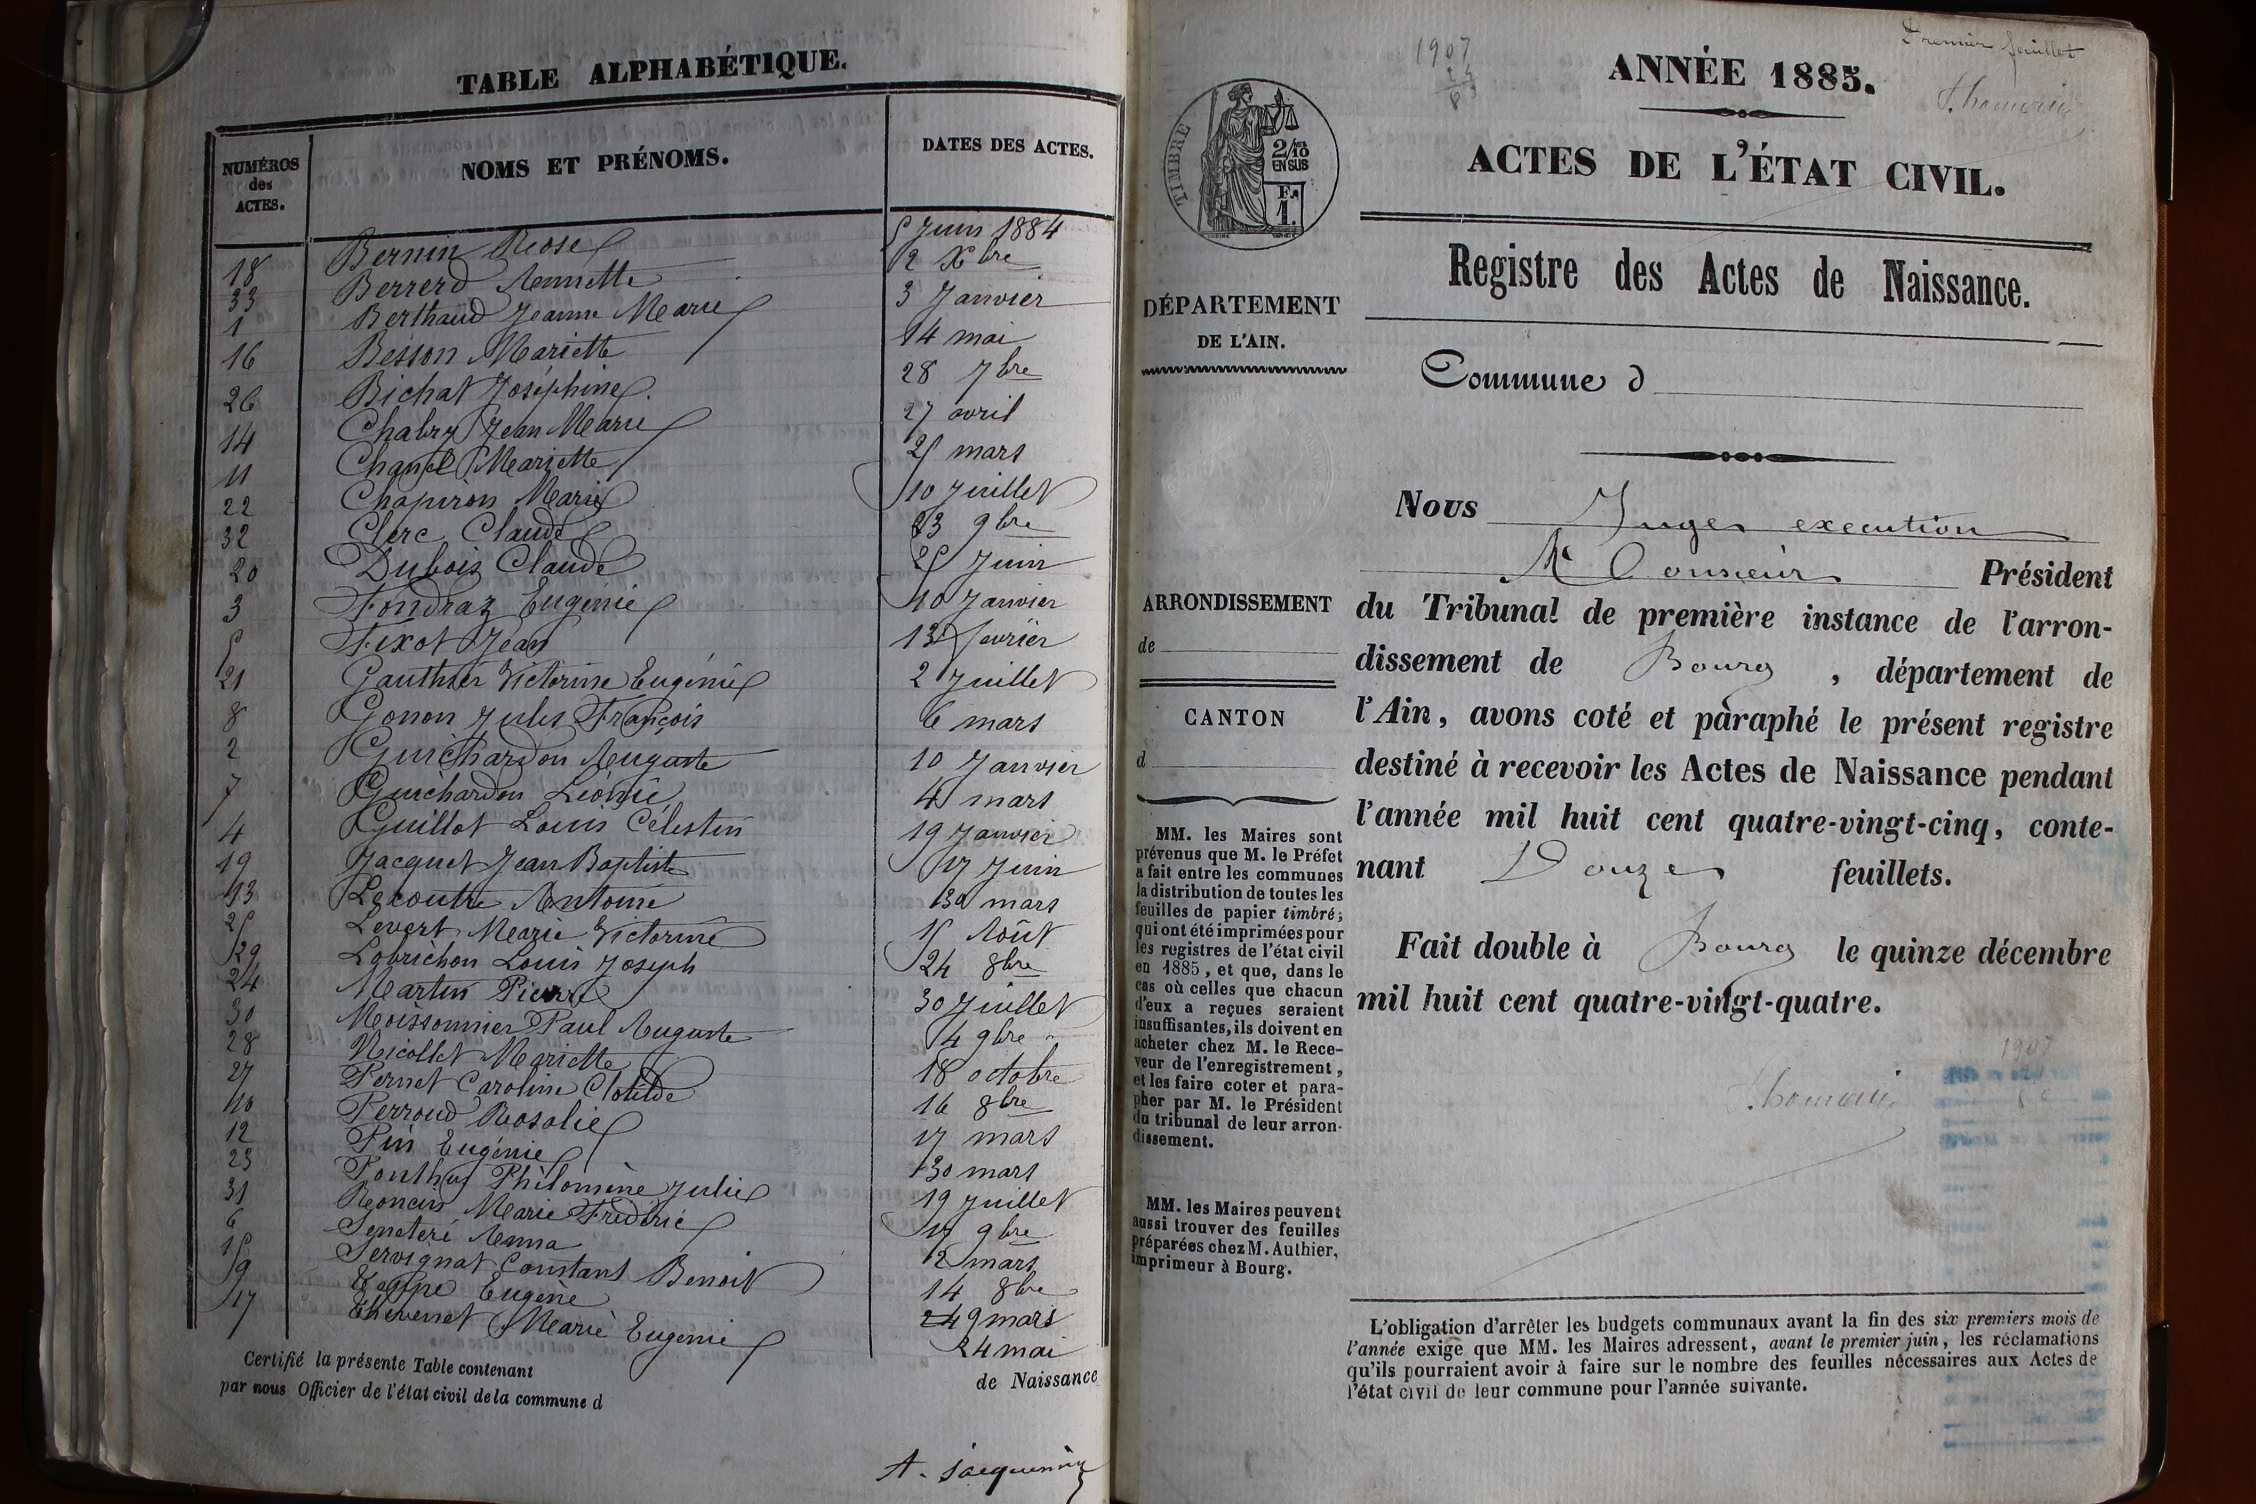 TABLE ALPHABÉTIQUE.
NUMÉROS
des
ACTES.
NOMS ET PRÉNOMS.
DATES DES ACTES.
18 Bernin Rose 5 Juin 1884
33 Berrerd Annette 2 Xbre
1 Berthaud Jeanne Marie 3 Janvier
16 Besson Mariette 14 mai
26 Bichat Joséphine 28 7bre
14 Chabry Jean Marie 27 avril
11 Chanel Mariette 25 mars
22 Chapiron Marie 10 Juillet
32 Clerc Claude 23 9bre
20 Dubois Claude 25 Juin
3 Fondraz Eugénie 10 Janvier
5 Fixot Jean 13 février
21 Gauthier Victorine Eugénie 2 Juillet
8 Gonon Jules François 6 mars
2 Guichardon Auguste 10 Janvier
7 Guichardon Léonie 4 mars
4 Guillot Louis Célestin 19 Janvier
19 Jacquet Jean Baptiste 17 Juin
13 Lecoutre Antoine 30 mars
25 Levert Marie Victorine 15 Août
29 Labrichon Louis Joseph 24 8bre
24 Martin Pierre 30 Juillet
30 Moissonnier Paul Auguste 4 9bre
28 Nicollet Mariette 18 octobre
27 Pernet Caroline Clotilde 16 8bre
10 Perroud Rosalie 17 mars
12 Pin Eugénie 30 mars
23 Ponthus Philomène Julie 19 Juillet
31 Marie Frédéric 17 9bre
6 Anna 2 mars
15 Servignat Constant Benoit 14 8bre
9 Eugene 9 mars
17 Thévenet Marie Eugenie 24 mai
Certifié la présente Table contenant de Naissance
par nous Officier de l'état civil de la commune d
A. Jacquemin
Premier feuillet
1907
ANNÉE 1885.
TIMBRE
2/10
EN SUS
F.
1.
ACTES DE L'ÉTAT CIVIL.
Registre des Actes de Naissance.
DÉPARTEMENT
DE L'AIN.
Commune d
ARRONDISSEMENT
de
CANTON
d
MM. les Maires sont
prévenus que M. le Préfet
a fait entre les communes
la distribution de toutes les
feuilles de papier timbré;
qui ont été imprimées pour
les registres de l'état civil
en 1885, et que, dans le
cas où celles que chacun
d'eux a reçues seraient
insuffisantes, ils doivent en
acheter chez M. le Rece-
veur de l'enregistrement,
et les faire coter et para-
pher par M. le Président
du tribunal de leur arron-
dissement.
MM. les Maires peuvent
aussi trouver des feuilles
préparées chez M. Authier,
imprimeur à Bourg.
Nous Juge execution
Président
du Tribunal de première instance de l'arron-
dissement de Bourg, département de
l'Ain, avons coté et paraphé le présent registre
destiné à recevoir les Actes de Naissance pendant
l'année mil huit cent quatre-vingt-cinq, conte-
nant Douze feuillets.
Fait double à Bourg le quinze décembre
mil huit cent quatre-vingt-quatre.
1907
L'obligation d'arrêter les budgets communaux avant la fin des six premiers mois de
l'année exige que MM. les Maires adressent, avant le premier juin, les réclamations
qu'ils pourraient avoir à faire sur le nombre des feuilles nécessaires aux Actes de
l'état civil de leur commune pour l'année suivante.